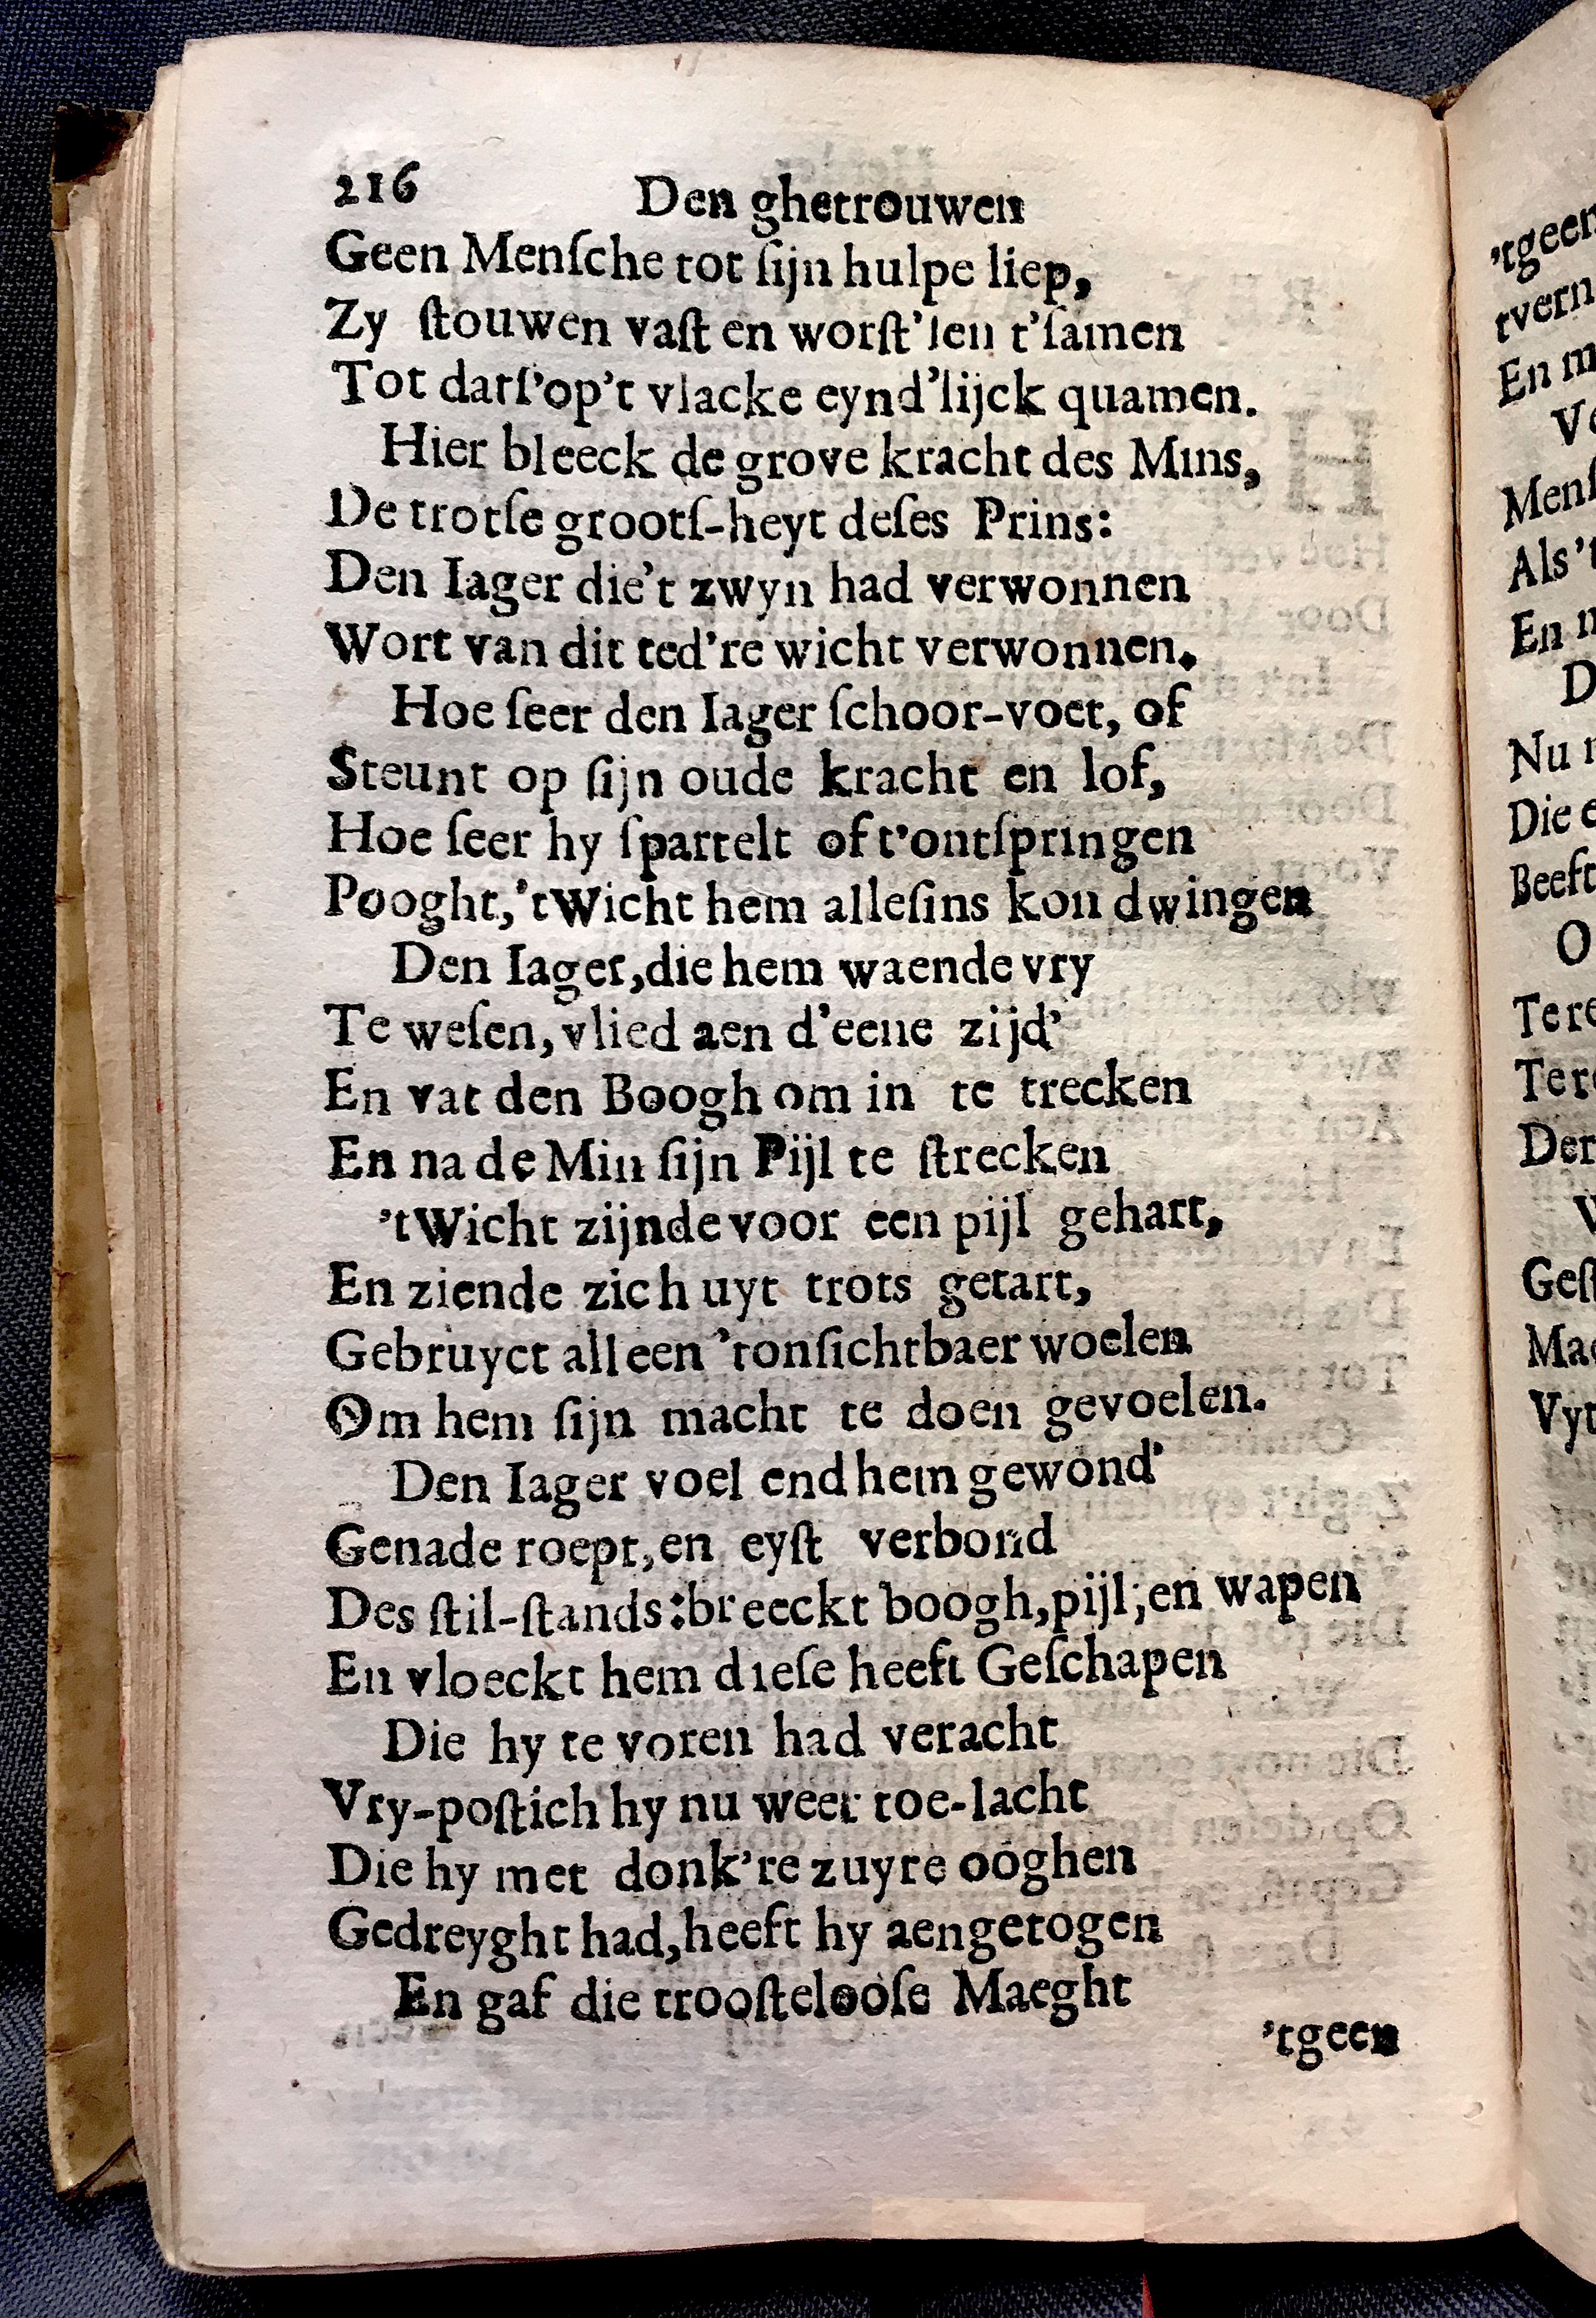 216 Den ghetrouwen
Geen Menſche tot ſijn hulpe liep,
Zy ſtouwen vaſt en worſt'len t'ſamen
Tot datſ'op't vlacke eynd'lijck quamen.
Hier bleeck de grove kracht des Mins,
De trotſe grootſ-heyt deſes Prins:
Den Iager die't zwyn had verwonnen
Wort van dit ted're wicht verwonnen.
Hoe ſeer den Iager ſchoor-voet, of
Steunt op ſijn oude kracht en lof,
Hoe ſeer hy ſpartelt of t'ontſpringen
Pooght,'t Wicht hem alleſins kon dwingen
Den Iager,die hem waende vry
Te weſen, vlied aen d'eene zijd'
En vat den Boogh om in te trecken
En na de Min ſijn Pijl te ſtrecken
't Wicht zijnde voor een pijl gehart,
En ziende zich uyt trots getart,
Gebruyct alleen 'tonſichtbaer woelen
Om hem ſijn macht te doen gevoelen.
Den Iager voel end hem gewond'
Genade roept,en eyſt verbond
Des ſtil-ſtands:breeckt boogh,pijl;en wapen
En vloeckt hem dieſe heeft Geſchapen
Die hy te voren had veracht
Vry-poſtich hy nu weer toe-lacht
Die hy met donk're zuyre ooghen
Gedreyght had,heeft hy aengetogen
En gaf die trooſtelooſe Maeght
'tgeen
'tgeen
tvern
En m
Ve
Menſ
Als 't
En n
D
Nu n
Die e
Beeft
O
Tere
Tere
Der
V
Geſ
Mae
Vyt